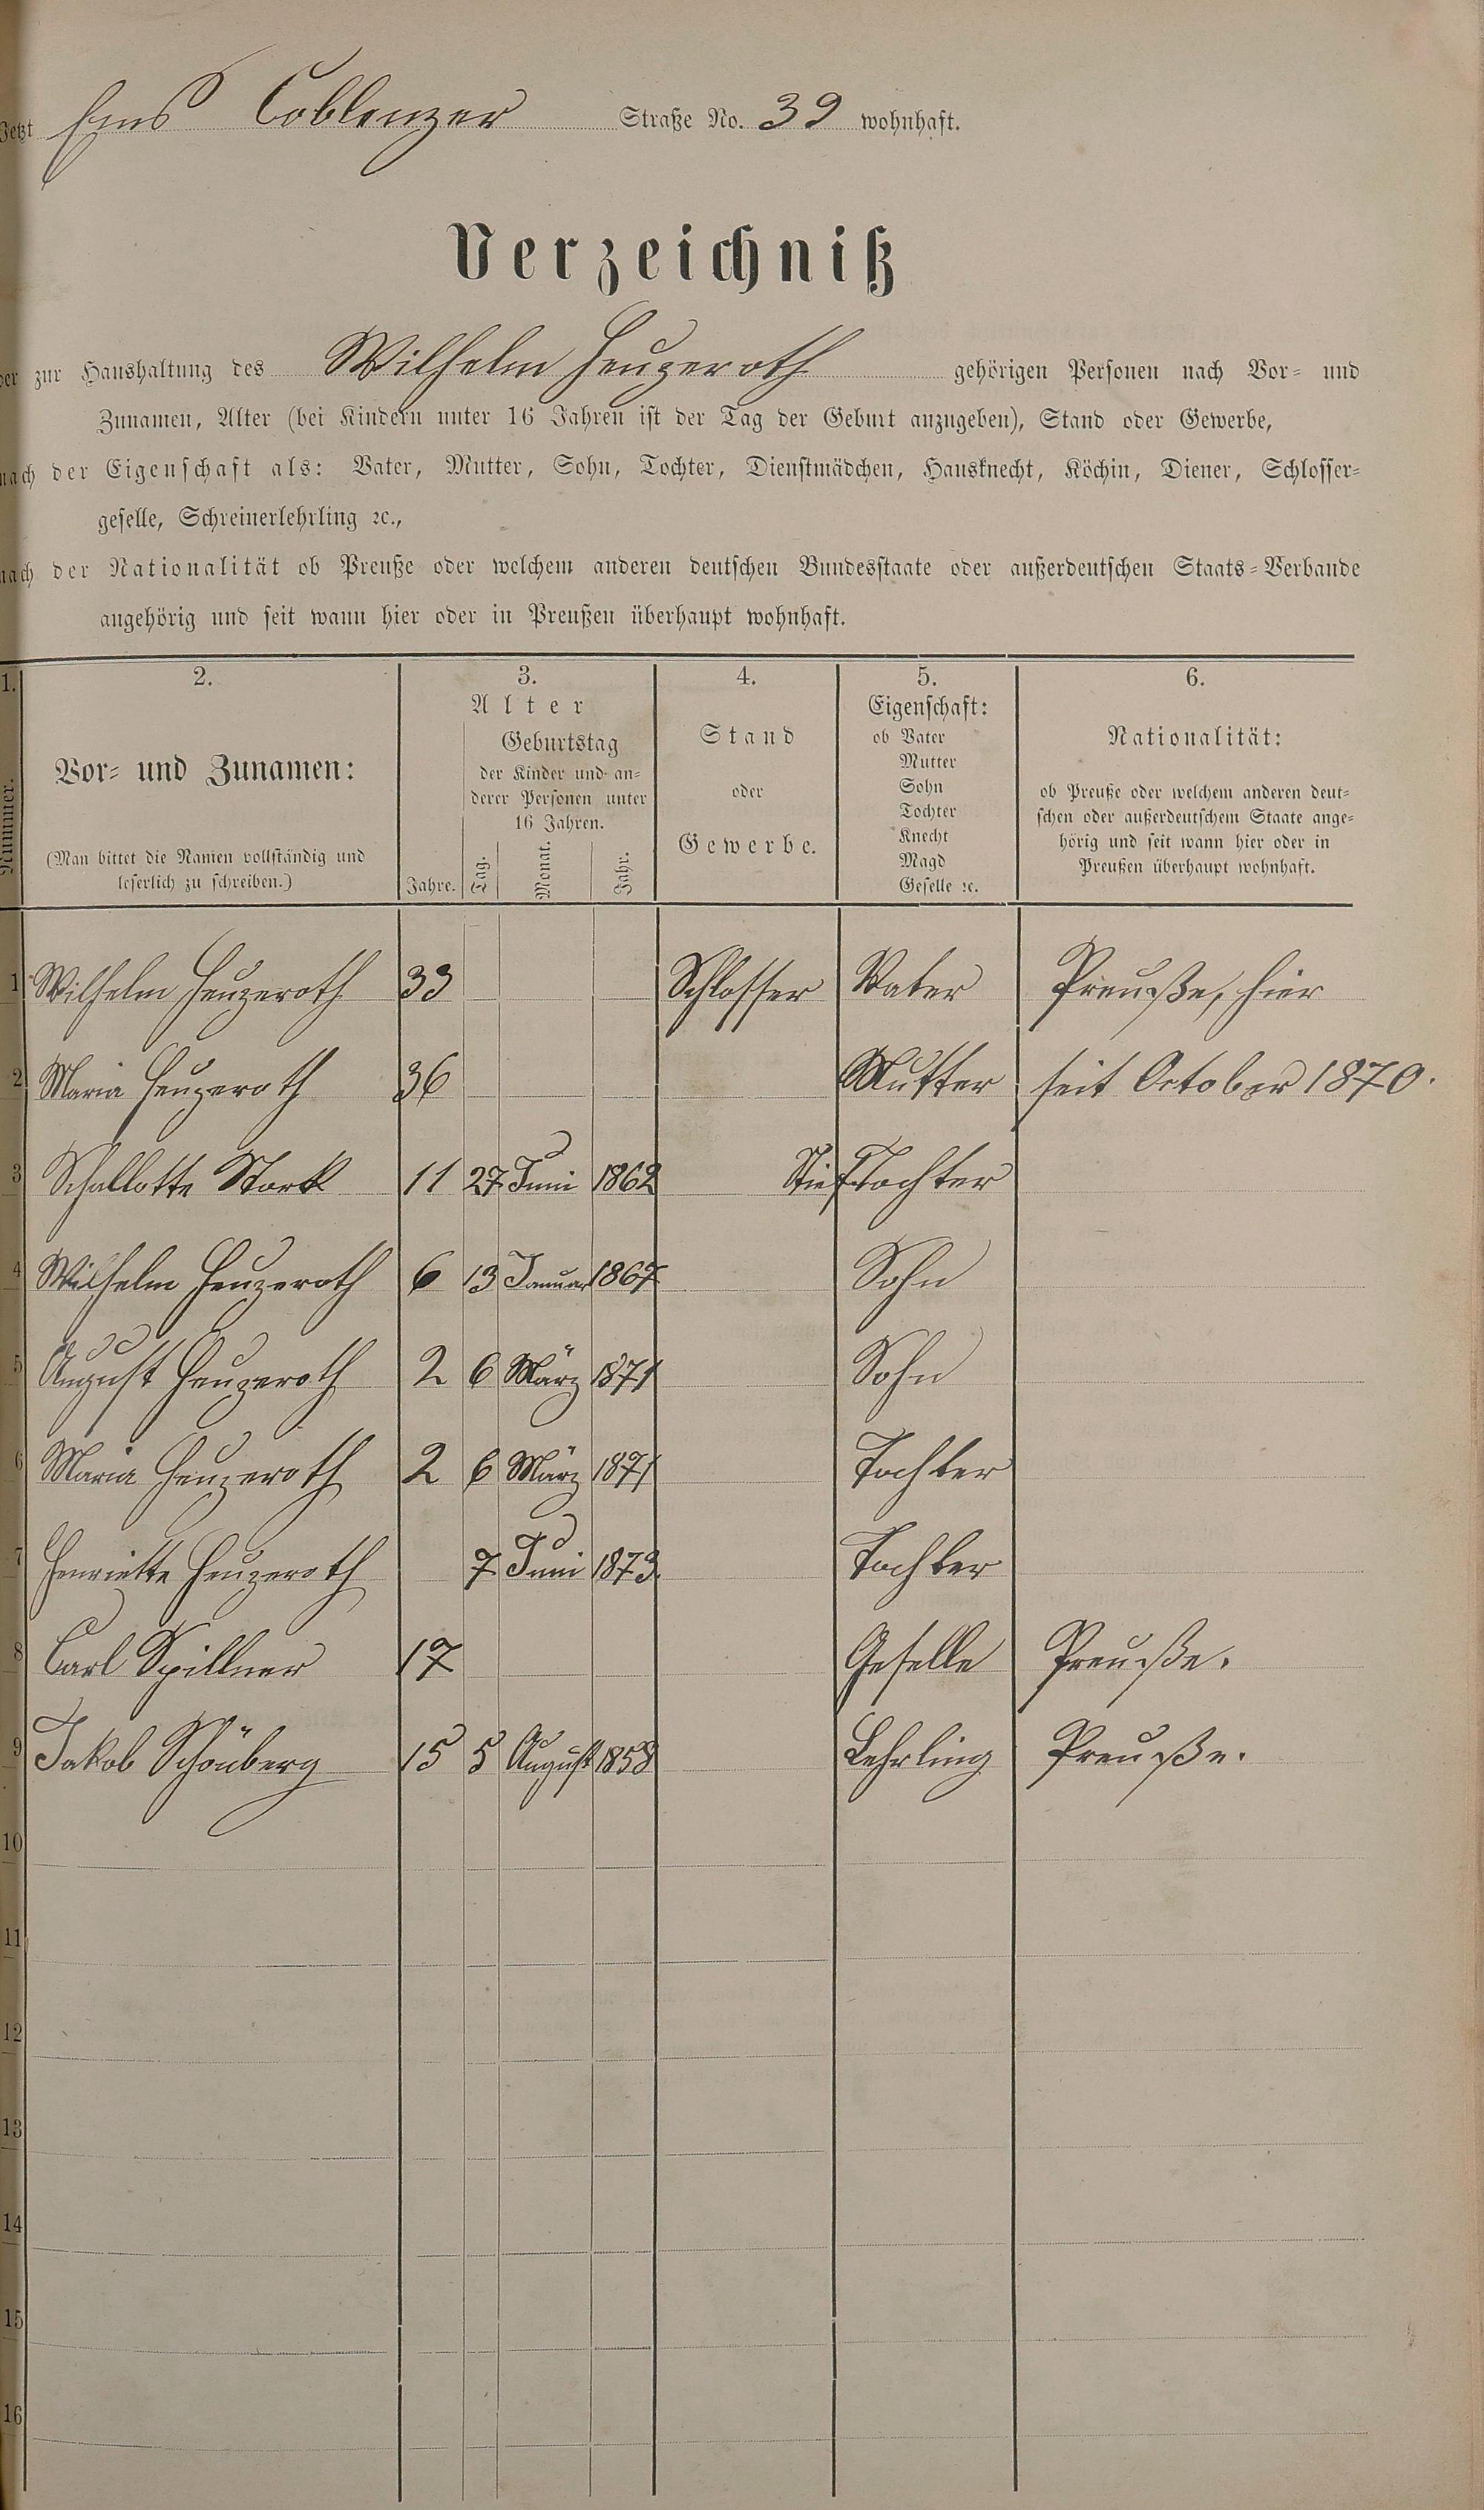 Jetzt Ems Coblenzer Straße No. 39 wohnhaft.
Verzeichniß
der zur Haushaltung des Wilhelm Heuzeroth gehörigen Personen nach Vor- und
Zunamen, Alter (bei Kindern unter 16 Jahren ist der Tag der Geburt anzugeben), Stand oder Gewerbe,
nach der Eigenschaft als: Vater, Mutter, Sohn, Tochter, Dienstmädchen, Hausknecht, Köchin, Diener, Schlosser-
geselle, Schreinerlehrling ꝛc.,
nach der Nationalität ob Preuße oder welchem anderen deutschen Bundesstaate oder außerdeutschen Staats-Verbande
angehörig und seit wann hier oder in Preußen überhaupt wohnhaft.
1. 2. 3. 4. 5. 6.
Nummer.
Vor- und Zunamen:
(Man bittet die Namen vollständig und
leserlich zu schreiben.)
Alter
Geburtstag
der Kinder und an-
derer Personen unter
16 Jahren.
Jahre. Tag. Monat. Jahr.
Stand
oder
Gewerbe.
Eigenschaft:
ob Vater
Mutter
Sohn
Tochter
Knecht
Magd
Geselle ꝛc.
Nationalität:
ob Preuße oder welchem anderen deut-
schen oder außerdeutschem Staate ange-
hörig und seit wann hier oder in
Preußen überhaupt wohnhaft.
1 Wilhelm Heuzeroth 33 Schlosser Vater Preuße, hier
2 Maria Heuzeroth 36 Mutter seit October 1870.
3 Schallotte Stork 11 27 Juni 1862 Stieftochter
4 Wilhelm Heuzeroth 6 13 Januar 1867 Sohn
5 August Heuzeroth 2 6 März 1871 Sohn
6 Maria Heuzeroth 2 6 März 1871 Tochter
7 Henriette Heuzeroth 7 Juni 1873. Tochter
8 Carl Spillner 17 Geselle Preuße.
9 Jakob Schönberg 15 5 August 1858 Lehrling Preuße.
10
11
12
13
14
15
16